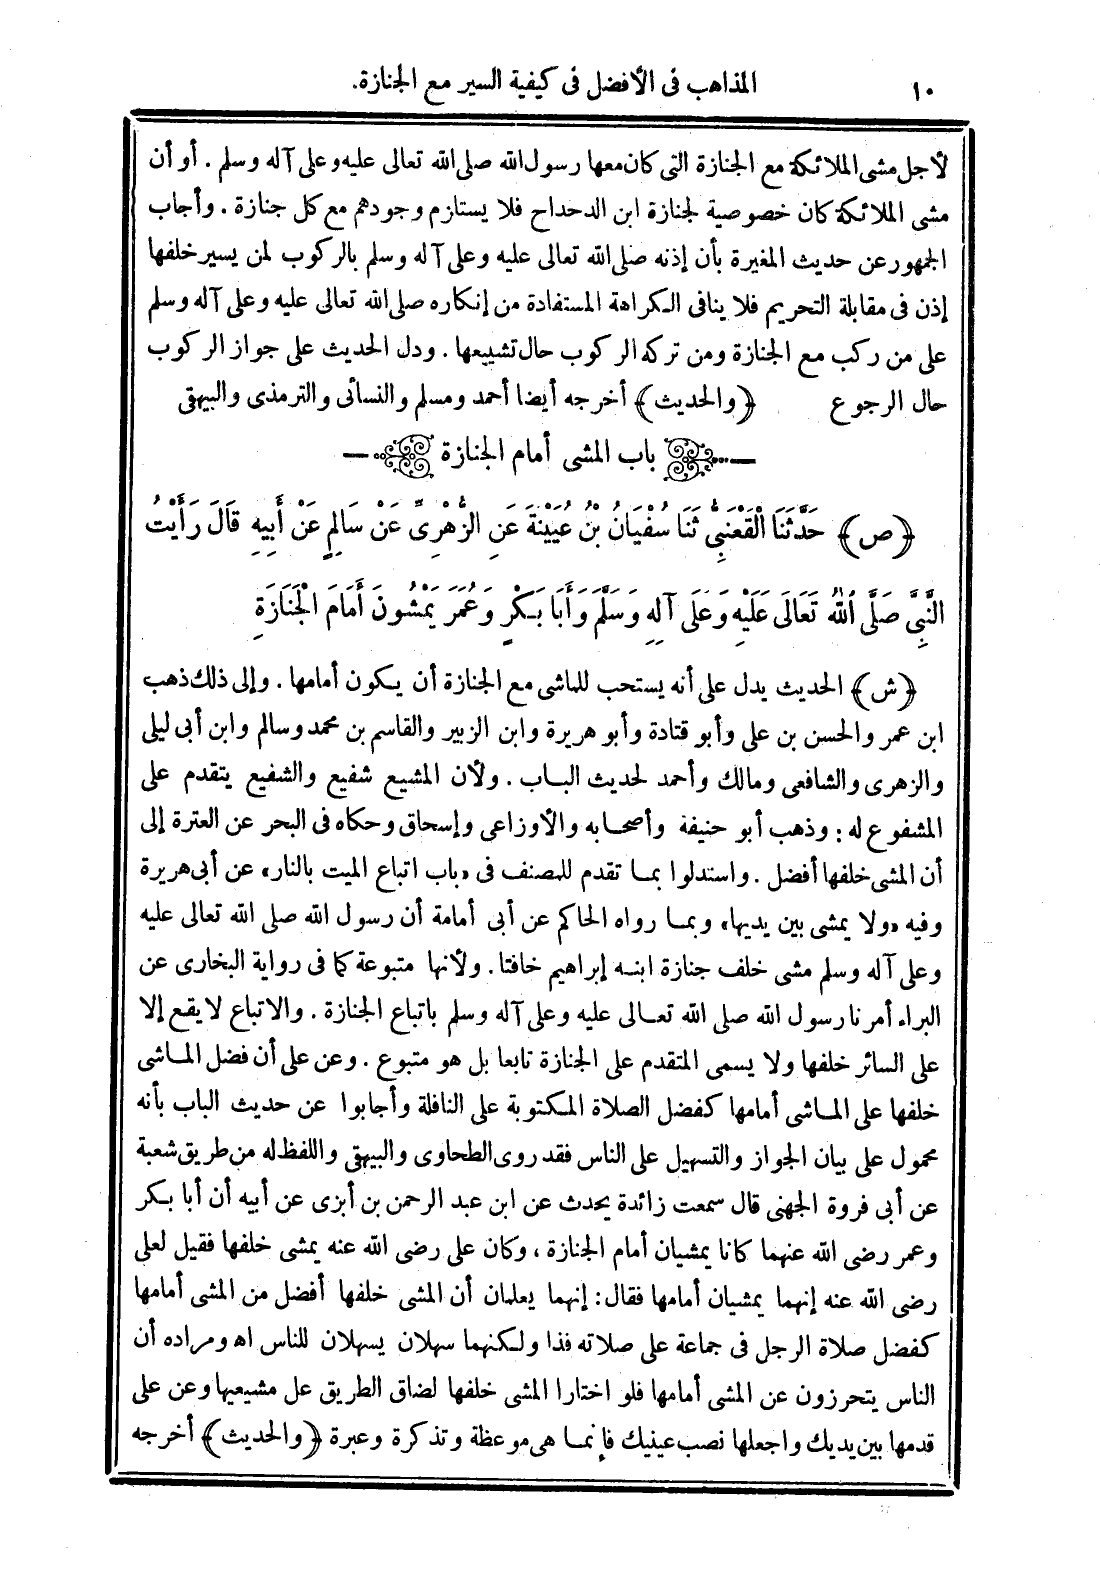 ١٠ المذاهب فى الأفضل فى كيفية السير مع الجنازة.
لأجل مشى الملائكة مع الجنازة التى كان معها رسول الله صلى الله تعالى عليه وعلى آله وسلم . أو أن
مشى الملائكة كان خصوصية لجنازة ابن الدحداح فلا يستلزم وجودهم مع كل جنازة . وأجاب
الجمهور عن حديث المغيرة بأن إذنه صلى الله تعالى عليه وعلى آله وسلم بالركوب لمن يسير خلفها
إذن فى مقابلة التحريم فلا ينافى الكراهة المستفادة من إنكاره صلى الله تعالى عليه وعلى آله وسلم
على من ركب مع الجنازة ومن تركه الركوب حال تشييعها . ودل الحديث على جواز الركوب
حال الرجوع ﴿والحديث﴾ أخرجه أيضا أحمد ومسلم والنسائى والترمذى والبيهقى
باب المشى أمام الجنازة
﴿ص﴾ حَدَّثَنَا الْقَعْنَبِىُّ ثَنَا سُفْيَانُ بْنُ عُيَيْنَةَ عَنِ الزُّهْرِىِّ عَنْ سَالِمٍ عَنْ أَبِيهِ قَالَ رَأَيْتُ
النَّبِىَّ صَلَّى اللهُ تَعَالَى عَلَيْهِ وَعَلَى آلِهِ وَسَلَّمَ وَأَبَا بَكْرٍ وَعُمَرَ يَمْشُونَ أَمَامَ الْجَنَازَةِ
﴿ش﴾ الحديث يدل على أنه يستحب للماشى مع الجنازة أن يكون أمامها . وإلى ذلك ذهب
ابن عمر والحسن بن على وأبو قتادة وأبو هريرة وابن الزبير والقاسم بن محمد وسالم وابن أبى ليلى
والزهرى والشافعى ومالك وأحمد لحديث الباب . ولأن المشيع شفيع والشفيع يتقدم على
المشفوع له : وذهب أبو حنيفة وأصحابه والأوزاعى وإسحاق وحكاه فى البحر عن العترة إلى
أن المشى خلفها أفضل . واستدلوا بما تقدم للمصنف فى «باب اتباع الميت بالنار» عن أبى هريرة
وفيه «ولا يمشى بين يديها» وبما رواه الحاكم عن أبى أمامة أن رسول الله صلى الله تعالى عليه
وعلى آله وسلم مشى خلف جنازة ابنه إبراهيم خافتا . ولأنها متبوعة كما فى رواية البخارى عن
البراء أمرنا رسول الله صلى الله تعالى عليه وعلى آله وسلم باتباع الجنازة . والاتباع لا يقع إلا
على السائر خلفها ولا يسمى المتقدم على الجنازة تابعا بل هو متبوع . وعن على أن فضل الماشى
خلفها على الماشى أمامها كفضل الصلاة المكتوبة على النافلة وأجابوا عن حديث الباب بأنه
محمول على بيان الجواز والتسهيل على الناس فقد روى الطحاوى والبيهقى واللفظ له من طريق شعبة
عن أبى فروة الجهنى قال سمعت زائدة يحدث عن ابن عبد الرحمن بن أبزى عن أبيه أن أبا بكر
وعمر رضى الله عنهما كانا يمشيان أمام الجنازة ، وكان على رضى الله عنه يمشى خلفها فقيل لعلى
رضى الله عنه إنهما يمشيان أمامها فقال : إنهما يعلمان أن المشى خلفها أفضل من المشى أمامها
كفضل صلاة الرجل فى جماعة على صلاته فذا ولكنهما سهلان يسهلان للناس اه ومراده أن
الناس يتحرزون عن المشى أمامها فلو اختارا المشى خلفها لضاق الطريق عل مشيعيها وعن على
قدمها بين يديك واجعلها نصب عينيك فإنما هى موعظة وتذكرة وعبرة ﴿والحديث﴾ أخرجه